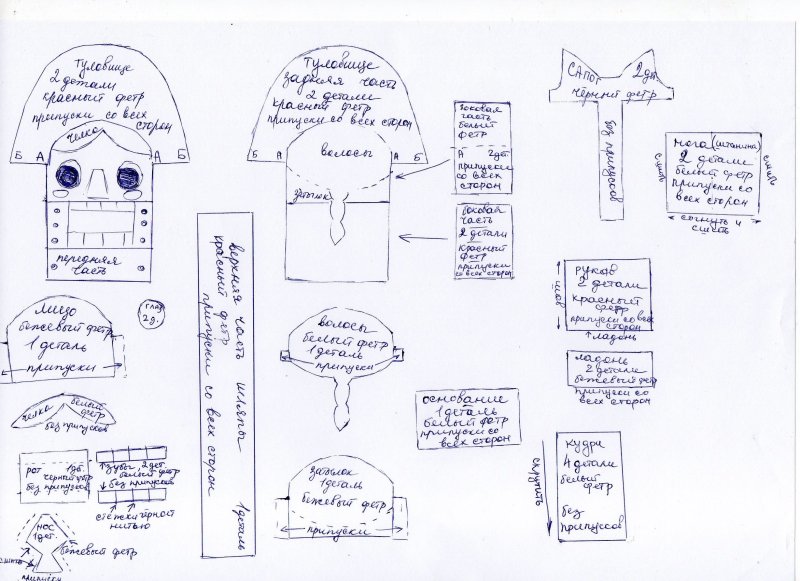 туловище
2 детали
красный фетр
припуски со всех
сторон
челка
Б А А Б
передняя
часть
туловище
задняя часть
2 детали
красный фетр
припуски со всех
сторон
Б А А Б
волосы
затылок
боковая
часть
белый
фетр
А 2дет
припуски
со всех
сторон
боковая
часть
2 детали
красный
фетр
припуски
со всех сторон
САПОГ 2дт.
чёрный фетр
без припусков
нога (штанина)
2 детали
белый фетр
припуски со
всех сторон
сшить
сшить
согнуть и
сшить
лицо
бежевый фетр
1 деталь
припуски
глаз
2д.
верхняя часть шляпы 1деталь
красный фетр
припуски со всех сторон
волосы
белый фетр
1деталь
припуски
рукав
2 детали
красный
фетр
припуски со всех
сторон
шов
ладонь
ладонь
2 детали
бежевый фетр
припуски со
всех сторон
основание
1деталь
белый фетр
припуски со
всех сторон
челка белый
фетр
без припусков
рот 1дб.
черный фетр
без припусков
зубы, 2дет.
белый фетр
без припусков
стежки чёрной
нитью
нос
1дет.
бежевый фетр
сшить
припуски
затылок
1деталь
бежевый фетр
припуски
кудри
4 детали
белый
фетр
без
припусков
скрутить